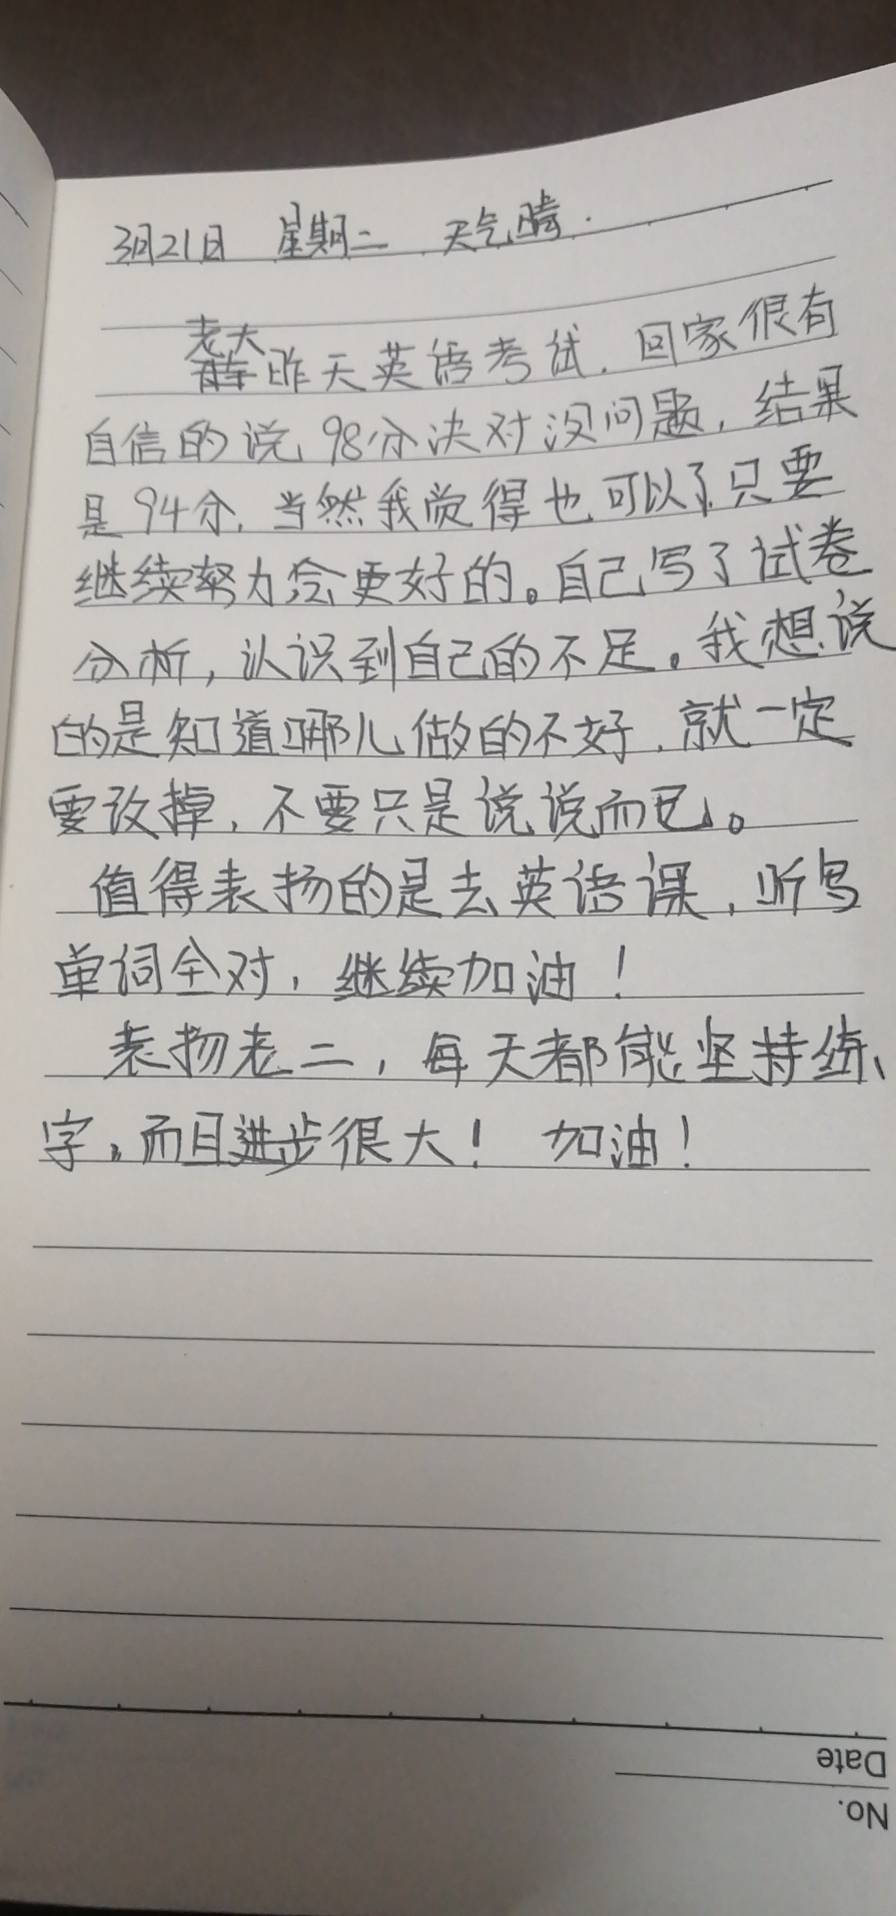 3月21日 星期二 天气晴.
老大
昨天英语考试,回家很有
自信的说,98分决对没问题,结果
是94分,当然我觉得也可以了,只要
继续努力会更好的。自己写了试卷
分析,认识到自己的不足。我想说
的是知道哪儿做的不好,就一定
要改掉,不要只是说说而已。
值得表扬的是去英语课,听写
单词全对,继续加油!
表扬老二,每天都能坚持练
字,而且进步很大! 加油!
Date
No.